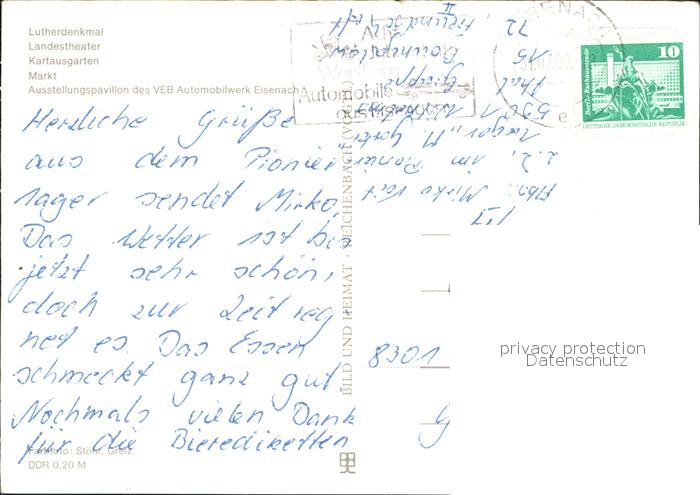 Lutherdenkmal
Landestheater
Kartausgarten
Markt
Ausstellungspavillon des VEB Automobilwerk Eisenach
Herzliche Grüße
aus dem Pionier
lager sendet Mirko.
Das Wetter ist bis
jetzt sehr schön,
doch zur Zeit reg
net es Das Essen
schmeckt ganz gut
Nochmals vielen Dank
für die Bierediketten
Farbfoto: Stöhr, Greiz
DDR 0,20 M
BILD UND HEIMAT · REICHENBACH (VOGTL)
Automobile
EISENACH
10
DEUTSCHE DEMOKRATISCHE REPUBLIK
Abs.: Mirko
2.2. im Pionier
lager „M.
5901
Gruppe
15
72 Freundschaft
II
8301
G
privacy protection
Datenschutz